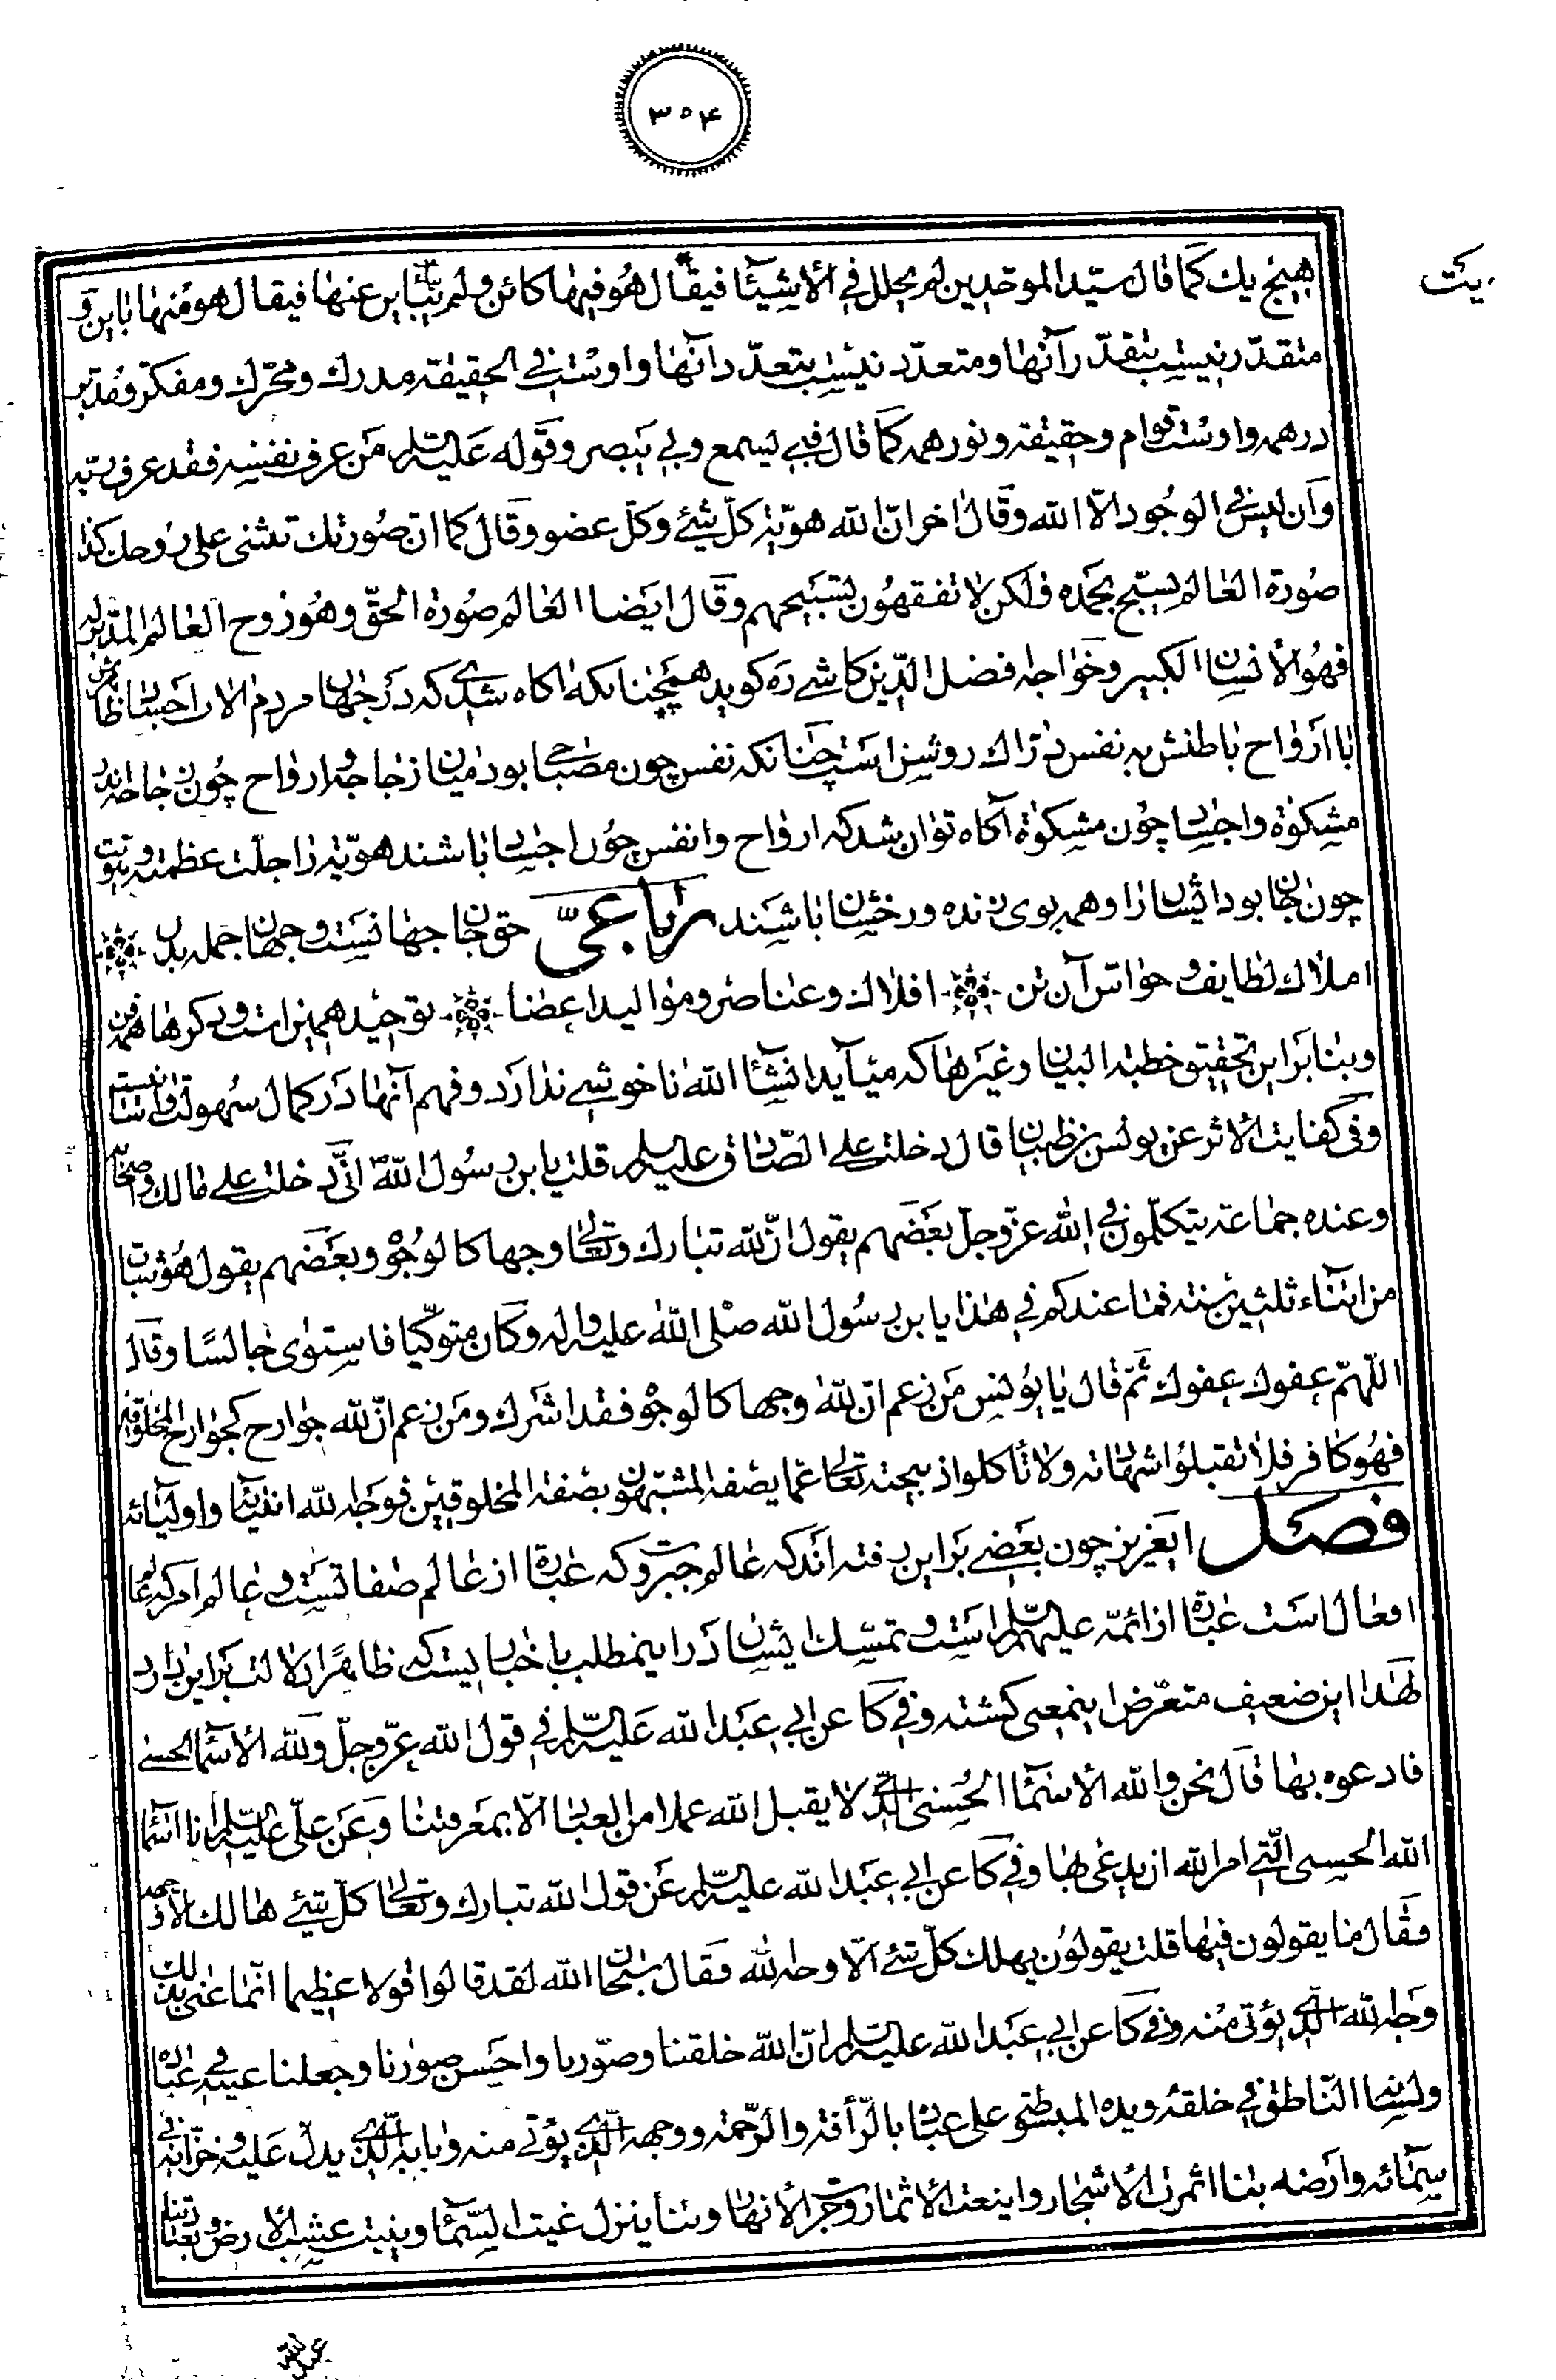 ۳۰۴
یکت
هیچ یك كما قال سیّد الموحّدین لم یحلل فی الأشیآء فیقال هو فیها کائن و لم یبٔاین عنها فیقال هو منها باین و
متقدّر نیست بتقدّر آنها و متعدّد نیست بتعدّد آنها و اوست فی الحقیقة مدرك و محرّك و مفکّر و مدبّر
در همه و اوست قوام و حقیقة و نور همه کما قال فبی یسمع و بی یبصر و قوله علیه السّلم من عرف نفسه فقد عرف ربّه
و آن لیس فی الوجود الّا اللّه و قال اخر انّ اللّه هویّة کلّ شیئ و کلّ عضو و قال کما انّ صورتك تثنی علی روحك کذا
صورة العالم یسبّح بحمده و لکن لا تفقهون تسبیحهم و قال ایضا العالم صورة الحقّ و هو روح العالم المدبّر له
فهو الأنسان الکبیر و خواجه فضل الدّین کاشی ره کوید همچنانکه اکاه شدی که در جهان مردم الات اجسٰان ظاهرش
با ارواح باطنش به نفس درّاك روشن است چنانکه نفس چون مصباحی بود میان زجاجه و ارواح چون زجاجه اند
مشکوة و اجسٰاد چون مشکوة آکاه توان شد که ارواح و انفس چون اجسٰاد باشند هویّة را جلّت عظمته و هویّت
چون جان بود ایشان را و همه بوی زنده و رخشان باشند رباعیّ حق جان جهانست و جهان جمله بدن
املاك لطایف و حواسّ آن تن افلاك و عناصر و موالید اعضا توحید همین است و دکرها همه فن
و بنا بر این تحقیق خطبة البیان و غیرها که میآید انشآء اللّه ناخوشی ندارد و فهم آنها در کمال سهولت و آسانیست
و فی کفایت الأثر عن یونس بن ظبیان قال دخلت علی الصّادق علیه السلم قلت یا بن رسول اللّه انّی دخلت علی مالك و اصحابه
و عنده جماعة یتکلّمون فی اللّه عزّ و جلّ بعضهم یقول انّ للّه تبارك و تعالی وجها کالوجوه و بعضهم یقول هو شابّ
من ابناء ثلثین سنة فما عندکم فی هذا یا بن رسول اللّه صلی اللّه علیه و اله و کان متوکّیا فاستوی جالسًا و قال
اللّهمّ عفوك عفوك ثمّ قال یا یونس من زعم انّ للّه وجها کالوجوه فقد اشرك و من زعم انّ للّه جوارح کجوارح المخلوقین
فهو کافر فلا تقبلوا شهادته و لا تأکلوا ذبیحته تعالی عمّا یصفه المشبّهون بصفة المخلوقین فوجه اللّه انبیآئه و اولیائه
فصل ایعزیز چون بعضی بر این رفته اند که عالم جبروت که عبارة از عالم صفاتست و عالم امر که عالم
افعال است عبارة از ائمّه علیهم السّلم است و تمسّك ایشان در اینمطلب باخباریست که ظاهرًا دلالت بر این دارد
لهذا این ضعیف متعرّض اینمعنی کشته و فی کا عن ابی عبد اللّه علیه السّلم فی قول اللّه عزّ و جلّ و للّه الأسمآء الحسنی
فادعوه بها قال نحن و اللّه الأسمآء الحسنی الّذی لا یقبل اللّه عملا من العباد الّا بمعرفتنا و عن علیّ علیه السّلم انا اسمآء
اللّه الحسنی الّتی امر اللّه ان یدعی بها و فی کا عن ابی عبد اللّه علیه السّلم عن قول اللّه تبارك و تعالی کلّ شیئ هالك الّا وجهه
فقال ما یقولون فیها قلت یقولون یهلك کلّ شیئ الّا وجه اللّه فقال سبحان اللّه لقد قالوا قولا عظیما انّما عنی بذلك
وجه اللّه الّذی یؤتی منه و فی کا عن ابی عبد اللّه علیه السّلم انّ اللّه خلقنا و صوّرنا و احسن صورنا و جعلنا عینه فی عباده
و لسانه النّاطق فی خلقه و یده المبسوطة علی عباده بالرّأفة و الرّحمة و وجهه الّذی یؤتی منه و بابه الّذی یدلّ علیه و خزّانه فی
سمآئه و ارضه بنا اثمرت الأشجار و اینعت الأثمار و جرت الأنهار و بنا ینزل غیث السّمآء و ینبت عشب الأرض و بعبادتنا